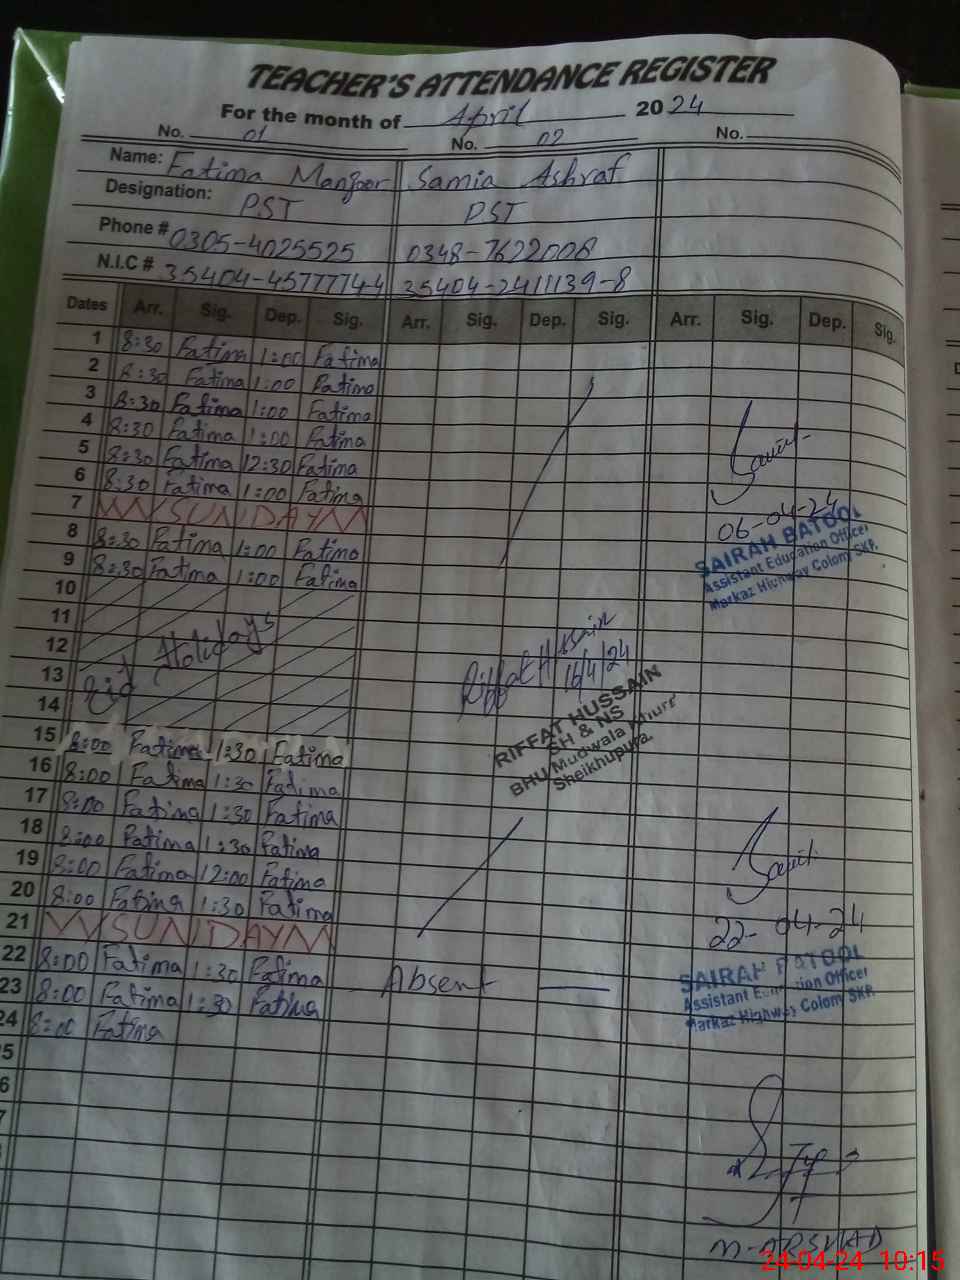 TEACHER'S ATTENDANCE REGISTER
For the month of April 2024
No. 01 No. 02 No.
Name: Fatima Manzoor Samia Ashraf
Designation: PST PST
Phone # 0305-4025525 0348-7622008
N.I.C # 35404-4577774-4 35404-2411139-8
Dates Arr. Sig. Dep. Sig. Arr. Sig. Dep. Sig. Arr. Sig. Dep. Sig.
1 8:30 Fatima 1:00 Fatima
2 8:30 Fatima 1:00 Fatima
3 8:30 Fatima 1:00 Fatima
4 8:30 Fatima 1:00 Fatima
5 8:30 Fatima 12:30 Fatima
6 8:30 Fatima 1:00 Fatima
7 SUNDAY
06-04-24
SAIRAH BATOOL
Assistant Education Officer
Markaz Highway Colony SKP.
8 8:30 Fatima 1:00 Fatima
9 8:30 Fatima 1:00 Fatima
10
11
12
13
14
Eid Holidays
Riffat Hussain
16/4/24
RIFFAT HUSSAIN
SH & NS
BHU Mudwala Khurr
Sheikhupura.
15 8:00 Fatima 1:30 Fatima
16 8:00 Fatima 1:30 Fatima
17 8:00 Fatima 1:30 Fatima
18 8:00 Fatima 1:30 Fatima
19 8:00 Fatima 12:00 Fatima
20 8:00 Fatima 1:30 Fatima
21 SUNDAY
22 8:00 Fatima 1:30 Fatima
23 8:00 Fatima 1:30 Fatima Absent
24 8:00 Fatima
22-04-24
SAIRAH BATOOL
Assistant Education Officer
Markaz Highway Colony SKP.
5
6
7
M-ARSHAD
24-04-24 10:15